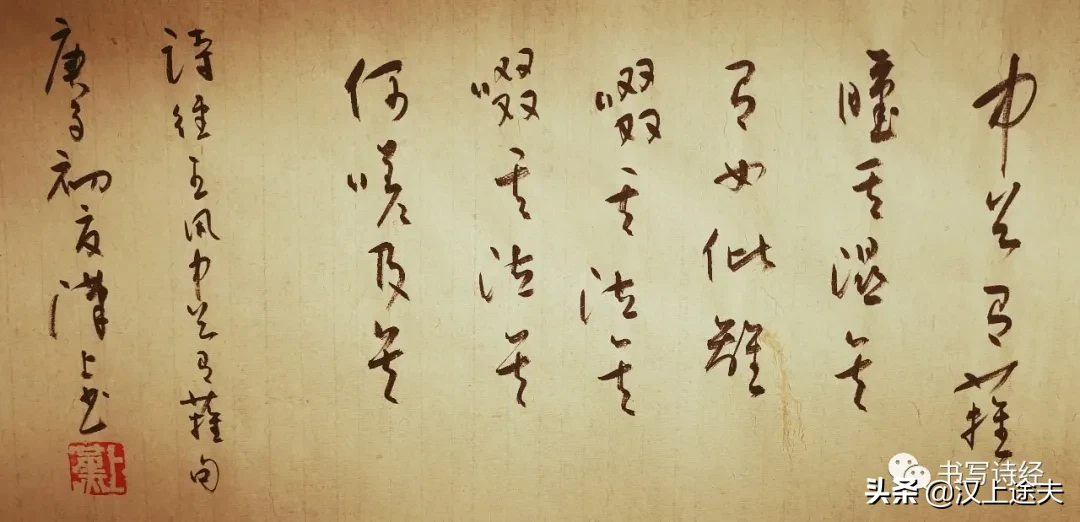 中谷有蓷
暵其湿矣
有女仳離
啜其泣矣
啜其泣矣
何嗟及矣
詩經王风中谷有蓷句
庚子初夏漢上书
漢上
书写诗经
头条 @汉上途夫